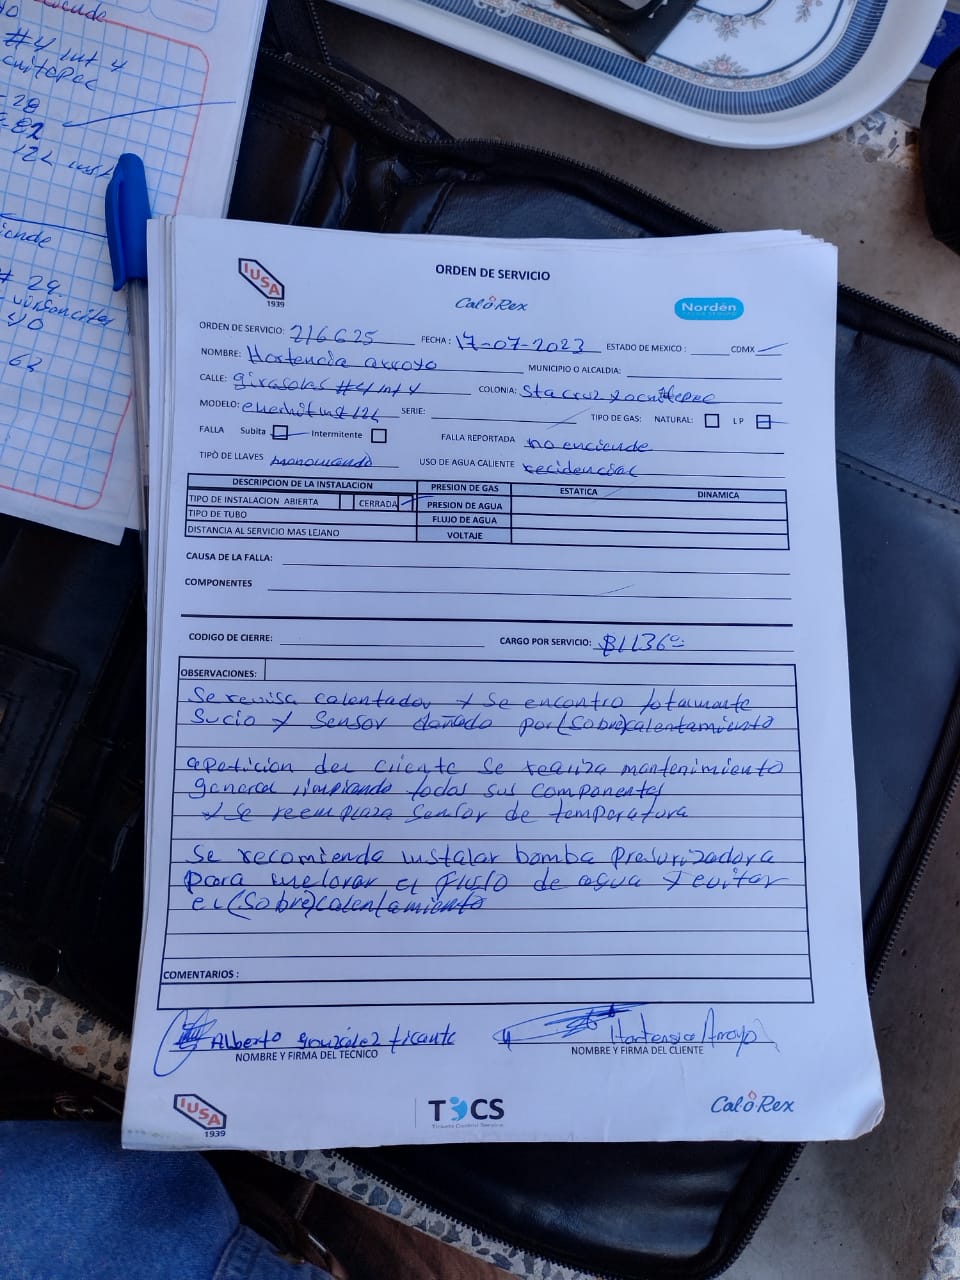 #4 int 4
28
82
12L inst
# 29
63
IUSA
1939
ORDEN DE SERVICIO
CalORex
Nordén
ORDEN DE SERVICIO: 216625 FECHA: 17-07-2023 ESTADO DE MEXICO: CDMX
NOMBRE: Hortencia arroyo MUNICIPIO O ALCALDIA:
CALLE: girasoles #4 int 4 COLONIA: Sta cruz xochitepec
MODELO: inst 12L SERIE: TIPO DE GAS: NATURAL: LP
FALLA Subita Intermitente FALLA REPORTADA no enciende
TIPO DE LLAVES monomando USO DE AGUA CALIENTE recidencial
DESCRIPCION DE LA INSTALACION PRESION DE GAS ESTATICA DINAMICA
TIPO DE INSTALACION ABIERTA CERRADA PRESION DE AGUA
TIPO DE TUBO FLUJO DE AGUA
DISTANCIA AL SERVICIO MAS LEJANO VOLTAJE
CAUSA DE LA FALLA:
COMPONENTES
CODIGO DE CIERRE: CARGO POR SERVICIO: $1136
OBSERVACIONES:
Se revisa calentador y se encontro totalmente
Sucio y Sensor dañado por (sobre)calentamiento
apeticion del cliente se realiza mantenimiento
general limpiando todos sus componentes
y se reemplaza sensor de temperatura
Se recomienda instalar bomba presurizadora
para mejorar el flujo de agua y evitar
el (sobre)calentamiento
COMENTARIOS :
Alberto González Licante Hortensia Arroyo
NOMBRE Y FIRMA DEL TECNICO NOMBRE Y FIRMA DEL CLIENTE
IUSA
1939
TCS
Tickets Control Service
CalORex